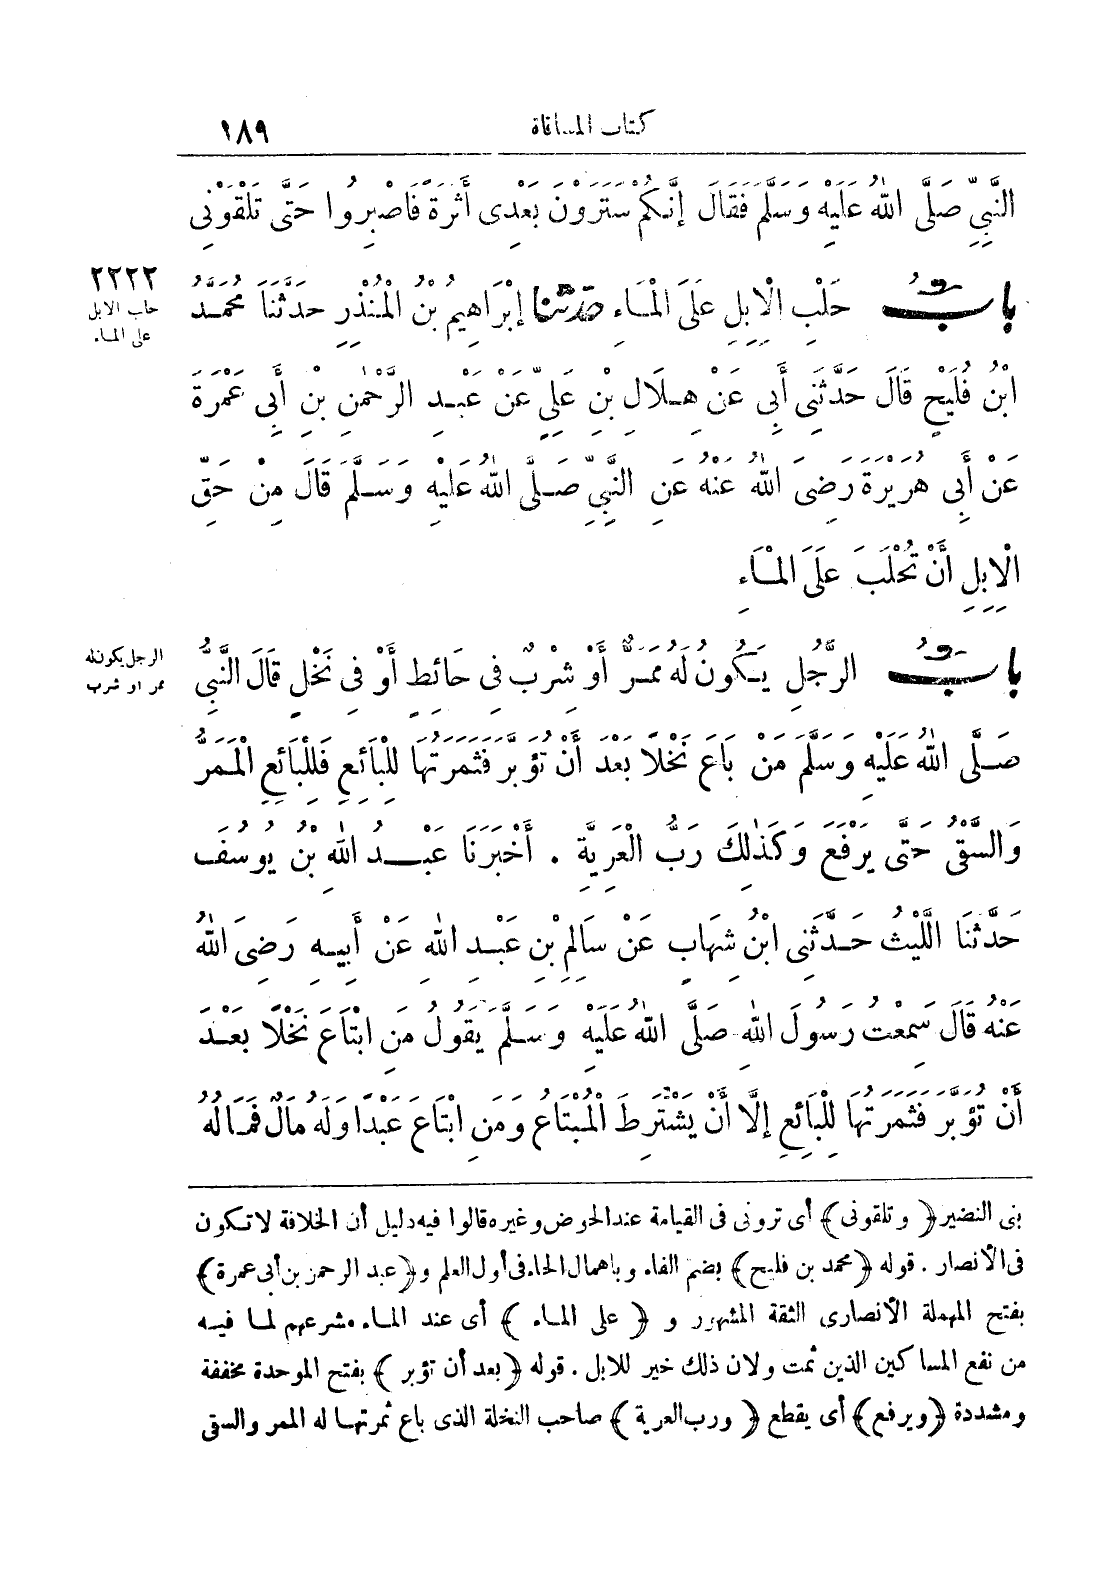 كتاب المساقاة ١٨٩
النَّبِيِّ صَلَّى اللهُ عَلَيْهِ وَسَلَّمَ فَقَالَ إِنَّكُمْ سَتَرَوْنَ بَعْدِى أَثَرَةً فَاصْبِرُوا حَتَّى تَلْقَوْنِى
٢٢٢٢
حلب الابل
على الماء
بابُ حَلْبِ الْإِبِلِ عَلَى الْمَاءِ حدثنا إِبْرَاهِيمُ بْنُ الْمُنْذِرِ حَدَّثَنَا مُحَمَّدُ
ابْنُ فُلَيْحٍ قَالَ حَدَّثَنِى أَبِى عَنْ هِلَالِ بْنِ عَلِيٍّ عَنْ عَبْدِ الرَّحْمٰنِ بْنِ أَبِى عَمْرَةَ
عَنْ أَبِى هُرَيْرَةَ رَضِىَ اللهُ عَنْهُ عَنِ النَّبِيِّ صَلَّى اللهُ عَلَيْهِ وَسَلَّمَ قَالَ مِنْ حَقِّ
الْإِبِلِ أَنْ تُحْلَبَ عَلَى الْمَاءِ
الرجل يكون له
ممر او شرب
بابُ الرَّجُلِ يَكُونُ لَهُ مَمَرٌّ أَوْ شِرْبٌ فِى حَائِطٍ أَوْ فِى نَخْلٍ قَالَ النَّبِىُّ
صَلَّى اللهُ عَلَيْهِ وَسَلَّمَ مَنْ بَاعَ نَخْلًا بَعْدَ أَنْ تُؤَبَّرَ فَثَمَرَتُهَا لِلْبَائِعِ فَلِلْبَائِعِ الْمَمَرُّ
وَالسَّقْىُ حَتَّى يَرْفَعَ وَكَذٰلِكَ رَبُّ الْعَرِيَّةِ . أَخْبَرَنَا عَبْدُ اللهِ بْنُ يُوسُفَ
حَدَّثَنَا اللَّيْثُ حَدَّثَنِى ابْنُ شِهَابٍ عَنْ سَالِمِ بْنِ عَبْدِ اللهِ عَنْ أَبِيهِ رَضِىَ اللهُ
عَنْهُ قَالَ سَمِعْتُ رَسُولَ اللهِ صَلَّى اللهُ عَلَيْهِ وَسَلَّمَ يَقُولُ مَنِ ابْتَاعَ نَخْلًا بَعْدَ
أَنْ تُؤَبَّرَ فَثَمَرَتُهَا لِلْبَائِعِ إِلَّا أَنْ يَشْتَرِطَ الْمُبْتَاعُ وَمَنِ ابْتَاعَ عَبْدًا وَلَهُ مَالٌ فَمَالُهُ
بنى النضير ﴿وتلقونى﴾ أى ترونى فى القيامة عند الحوض وغيره قالوا فيه دليل أن الخلافة لا تكون
فى الأنصار . قوله ﴿محمد بن فليح﴾ بضم الفاء وباهمال الحاء فى أول العلم و﴿عبد الرحمن بن أبى عمرة﴾
بفتح المهملة الأنصارى الثقة المشهور و ﴿على الماء﴾ أى عند الماء مشرعهم لما فيه
من نفع المساكين الذين ثمت ولان ذلك خير للابل . قوله ﴿بعد أن تؤبر﴾ بفتح الموحدة مخففة
ومشددة ﴿ويرفع﴾ أى يقطع ﴿ورب العرية﴾ صاحب النخلة الذى باع ثمرتها له الممر والسقى